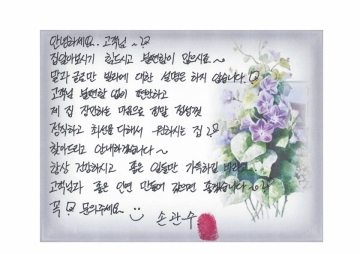 안녕하세요. 고객님~
집알아보시기 힘드시고 불편함이 많으시죠~
말과 글로만 빌라에 대한 설명은 하지 않습니다.
고객님 불편함 없이 편안하고
제 집 장만하는 마음으로 정말 정성껏
정직하고 최선을 다해서 원하시는 집
찾아드리고 안내해드리겠습니다~
항상 건강하시고 좋은 일들만 가득하길 바라고
고객님과 좋은 인연 만들어 갔으면 좋겠습니다~
꼭! 문의주세요
손관수